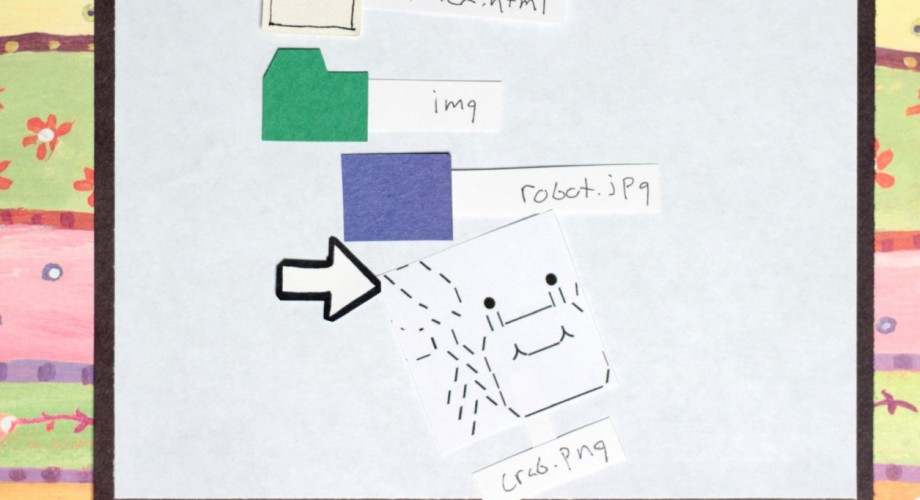 img
robot.jpg
crab.png